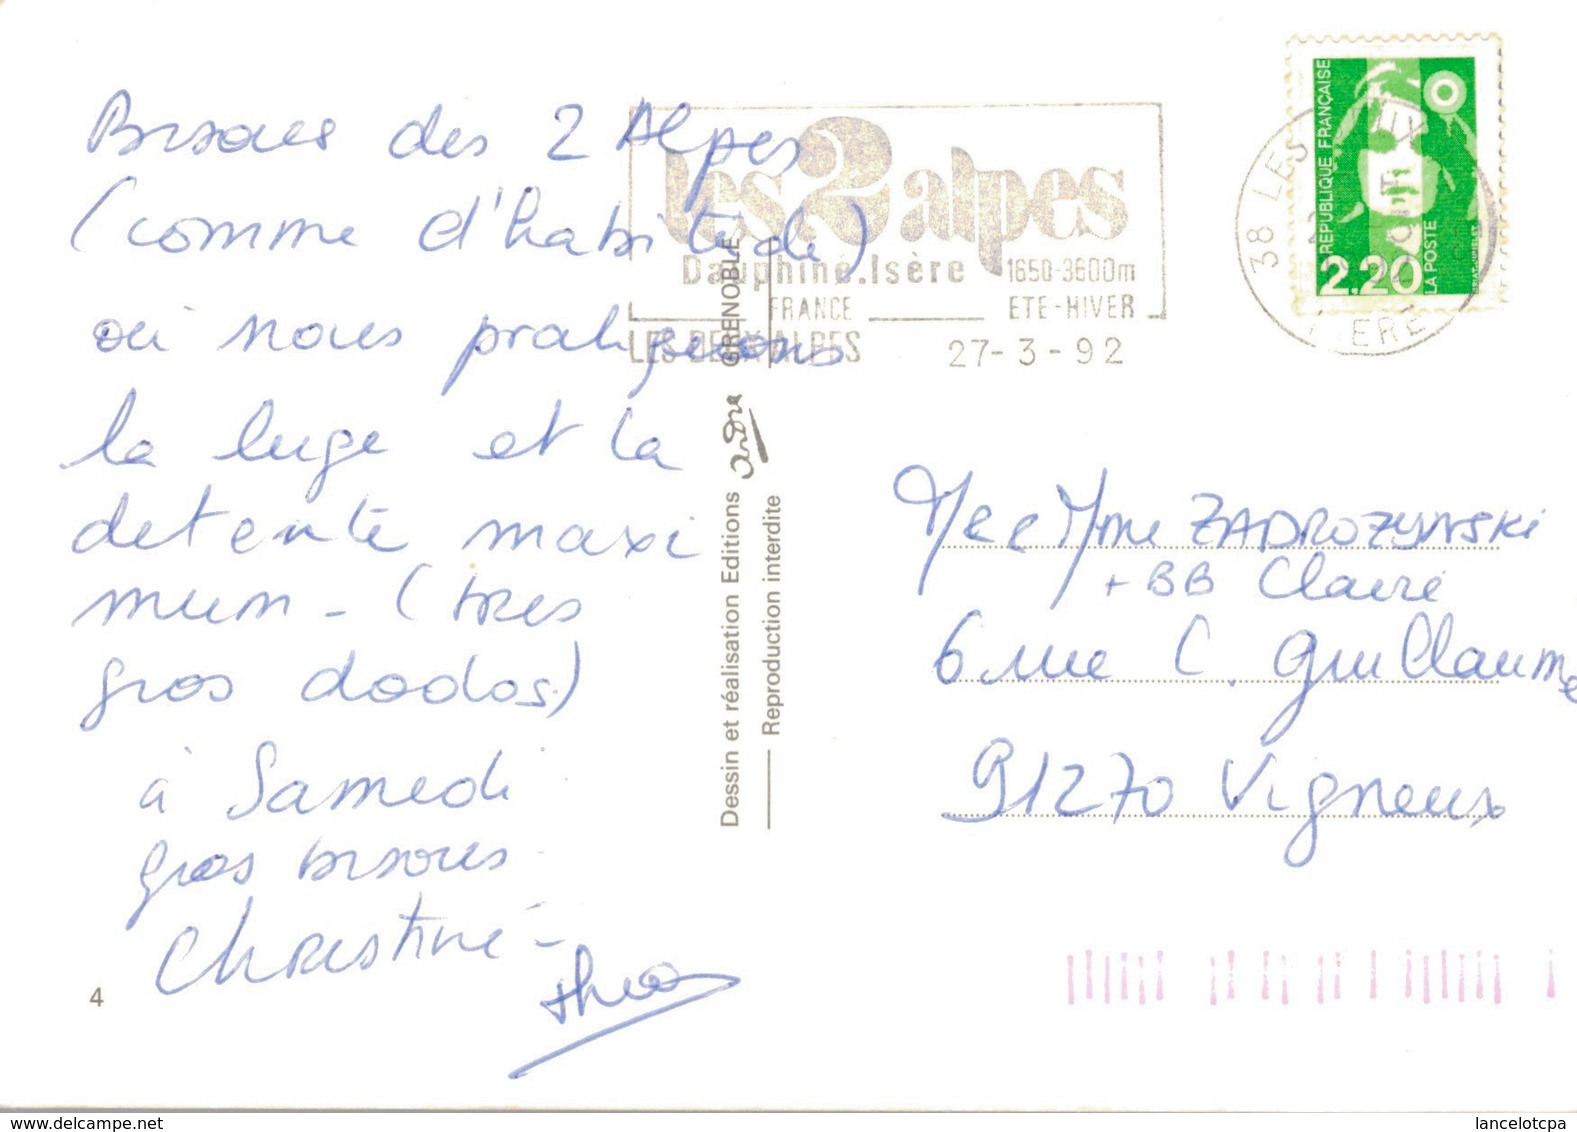 Bisous des 2 Alpes
(comme d'habitude)
où nous pratiquons
la luge et la
détente maxi
mum - (très
gros dodos)
à Samedi
gros bisous
Christine -
4
les 2 alpes
Dauphiné.Isère 1650-3600m
FRANCE ETE-HIVER
LES DEUX ALPES 27-3-92
38 LES
ISERE
REPUBLIQUE FRANÇAISE
2.20
LA POSTE
Dessin et réalisation Editions André GRENOBLE
Reproduction interdite
Mr et Mme ZADROZYNSKI
+ BB Claire
6 rue C. Guillaume
91270 Vigneux
www.delcampe.net
lancelotcpa